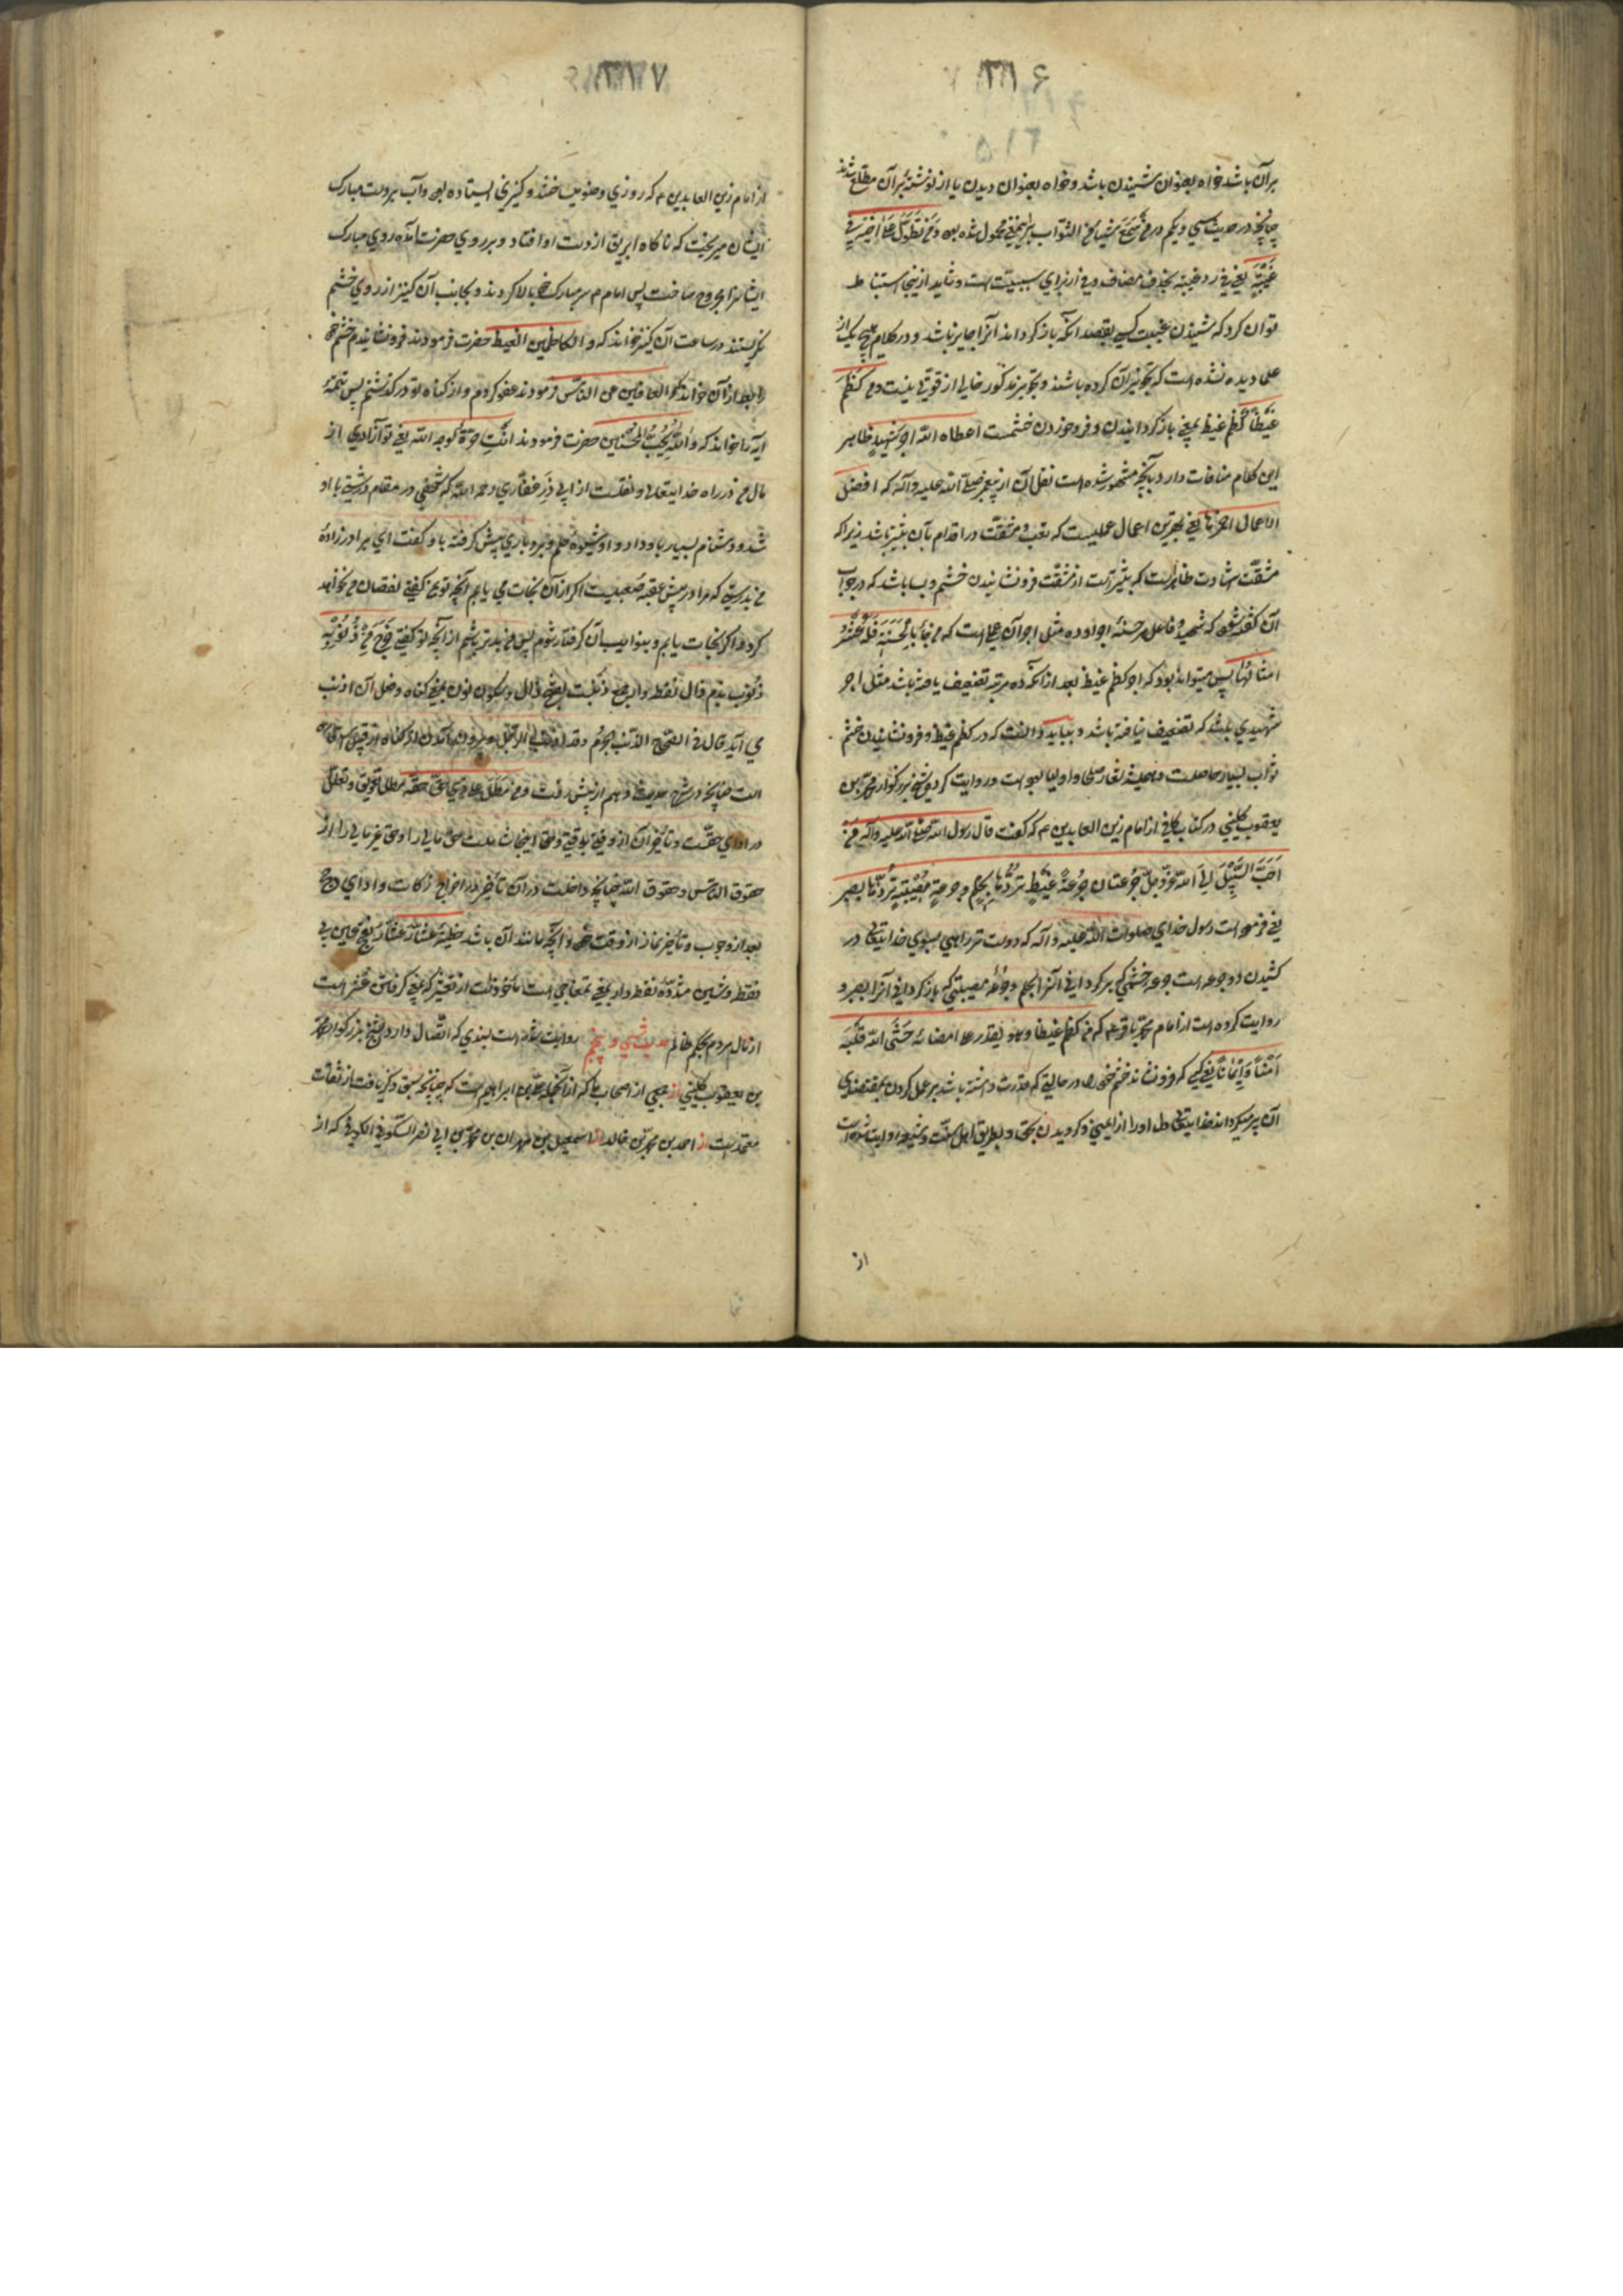 برآن باشد خواه بعنوان شنیدن باشد و خواه بعنوان دیدن یا از نوشتهٔ برآن مطلع شدند
چنانچه در حدیث سی و یکم در من سمع شیئا من الثواب براینمعنی محمول شده بود و من تطول علی اخیه فی
غیبة یعنی فی رد غیبة بحذف مضاف و فی از برای سببیت است و شاید ازینجا استنباط
توان کرد که شنیدن غیبت کسی بقصد آنکه باز گرداند آنرا جایز باشد و در کلام هیچ یک از
علما دیده نشده است که تجویز آن کرده باشند و تجویز مذکور خالی از قوتی نیست و من کظم
غیظا کظم غیظ بمعنی باز گردانیدن و فرو خوردن خشمست اعطاه الله اجر شهید ظاهر
این کلام منافات دارد بآنچه مشهور شده است نقل آن از پیغمبر صلی الله علیه وآله که افضل
الاعمال احمزها یعنی بهترین اعمال عملیست که تعب و مشقت در اقدام بآن بیشتر باشد زیرا که
مشقت شهادت ظاهرست که بیشترست از مشقت فرو نشانیدن خشم و بسا باشد که در جواب
آن گفته شود که شهید و فاعل هر حسنهٔ اجر او ده مثل اجر آن عمل است که من جاء بالحسنة فله عشر
امثالها پس میتواند بود که اجر کظم غیظ بعد از آنکه ده مرتبه تضعیف یافته باشد مثل اجر
شهیدی باشد که تضعیف نیافته باشد و بباید دانست که در کظم غیظ و فرو نشانیدن خشم
ثواب بسیار حاصلست و همیشه شعار صلحا و اولیا بوده است و روایت کرده شیخ بزرگوار محمد بن
یعقوب کلینی در کتاب کافی از امام زین العابدین ع که گفت قال رسول الله صلی الله علیه وآله من
احب السبیل لی الله عز وجل جرعتان جرعة غیظ تردها بحلم و جرعة مصیبة تردها بصبر
یعنی فرموده است رسول خدای صلوات الله علیه وآله که دوست ترین راهی بسوی خدایتعالی در
کشیدن دو جرعه است جرعه خشمی که برگردانی آنرا بحلم و جرعهٔ مصیبتی که باز گردانی آنرا بصبر و
روایت کرده است از امام محمد باقر ع که من کظم غیظا وهو یقدر علی امضائه حشی الله قلبه
امنا و ایمانا یعنی کسی که فرو نشاند خشم خود را در حالتی که قدرت داشته باشد بر عمل کردن بمقتضای
آن پر میگرداند خدایتعالی دل او را از ایمنی و گرویدن بحق و بطریق اهل سنت و شیعه روایت شده است
از
از امام زین العابدین ع که روزی وضو میساختند و کنیزی ایستاده بود و آب بر دست مبارک
ایشان میریخت که ناگاه ابریق از دست او افتاد و بر روی حضرت آمده روی مبارک
ایشانرا مجروح ساخت پس امام ع سر مبارک خود بالا کردند و بجانب آن کنیز از روی خشم
نگریستند در ساعت آن کنیز خواند که و الکاظمین الغیظ حضرت فرمودند فرو نشاندم خشم خود
را بعد از آن خواند که و العافین عن الناس فرمودند عفو کردم و از گناه تو در گذشتم پس تتمهٔ
آیه را خواند که و الله یحب المحسنین حضرت فرمودند انت حرة لوجه الله یعنی تو آزادی از
مال من در راه خدایتعالی و نقلست از ابی ذر غفاری رحمه الله که شخصی در مقام درشتی با او
شد و دشنام بسیار باو داد و او شیوه حلم و بردباری پیش گرفته باو گفت ای برادر زادهٔ
من بدرستی که مرا در پیش عقبه صعبیست اگر از آن نجات می یابم آنچه تو بمن گفتی نقصان من نخواهد
کرد و اگر نجات نیابم و بعذاب آن گرفتار شوم پس من بدتر باشم از آنچه تو گفتی خرج من ذنوبه
ذنوب بضم ذال نقطه دار جمع ذنبست بفتح ذال و سکون نون بمعنی گناه و فعل آن اذنب
می آید قال فی الصحاح الذنب الجرم و قد اذنب الرجل و بیرون آمدن از گناه از قبیل استعاره
است چنانچه در شرح حدیث دهم از پیش رفت و من مطل علی ذی حق حقه مطل تعویق و تعلل
در ادای حقست و تأخیر آن از وقتی بوقتی و حق اینجا شاملست حق مالی را و حق غیر مالی را از
حقوق الناس و حقوق الله چنانچه داخلست در آن تأخیر در اخراج زکات و ادای حج
بعد از وجوب و تأخیر نماز از وقت خود و آنچه مانند آن باشد خطیئة عشار عشار بفتح عین بی
نقطه و شین مشدده نقطه دار بمعنی تمغاچی است مأخوذست از تعشیر که بمعنی گرفتن عشر است
از مال مردم بحکم ظالم حدیث سی و پنجم روایت شده است بسندی که اتصال دارد بشیخ بزرگوار محمد
بن یعقوب کلینی از جمعی از اصحاب ما که از آنجمله علی بن ابراهیم است که چنانچه سبق ذکر یافت از ثقات
معتمدست از احمد بن محمد بن خالد از اسمعیل بن مهران بن محمد بن ابی نصر السکونی الکوفی که از